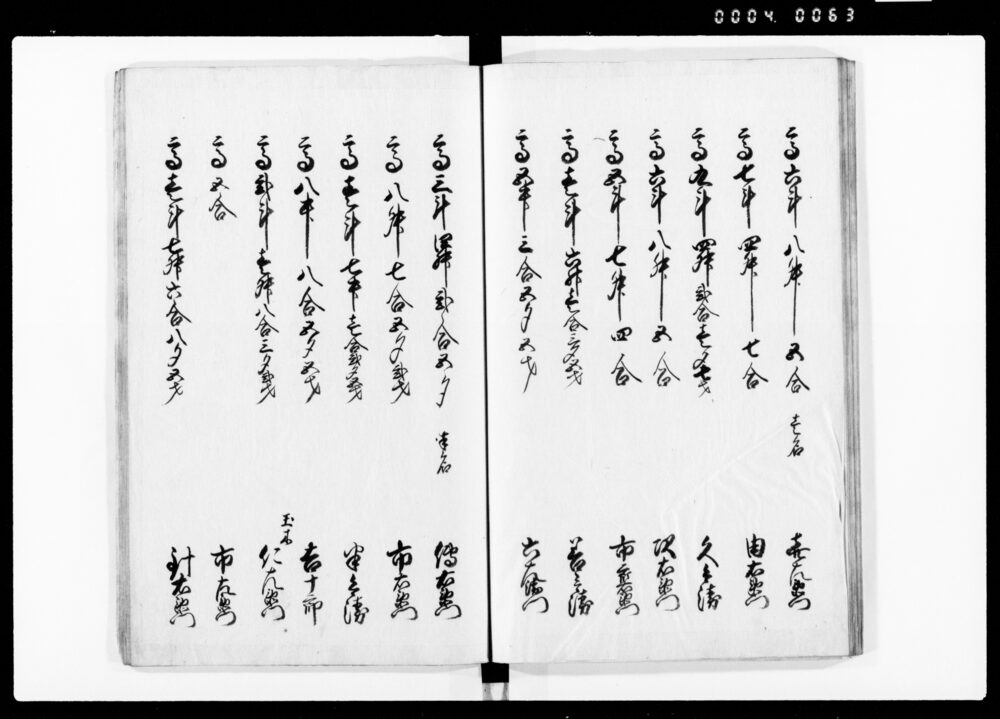 0004 0063
高六斗八升五合 壱石 喜左衛門
高七斗四升七合 由右衛門
高九斗四升弐合壱夕七才 久兵衛
高六斗八升五合 次右衛門
高五斗七升四合 市左衛門
高壱斗六升壱合三夕弐才 善兵衛
高五升三合五夕五才 六右衛門
高三斗四升弐合五夕 半右 伝右衛門
高八升七合五夕弐才 市右衛門
高壱斗七升壱合弐夕五才 半兵衛
高八升八合五夕五才 吉十郎
高弐斗壱升八合三夕弐才 仁左衛門
高五合 市左衛門
高壱斗七升六合八夕五才 右衛門